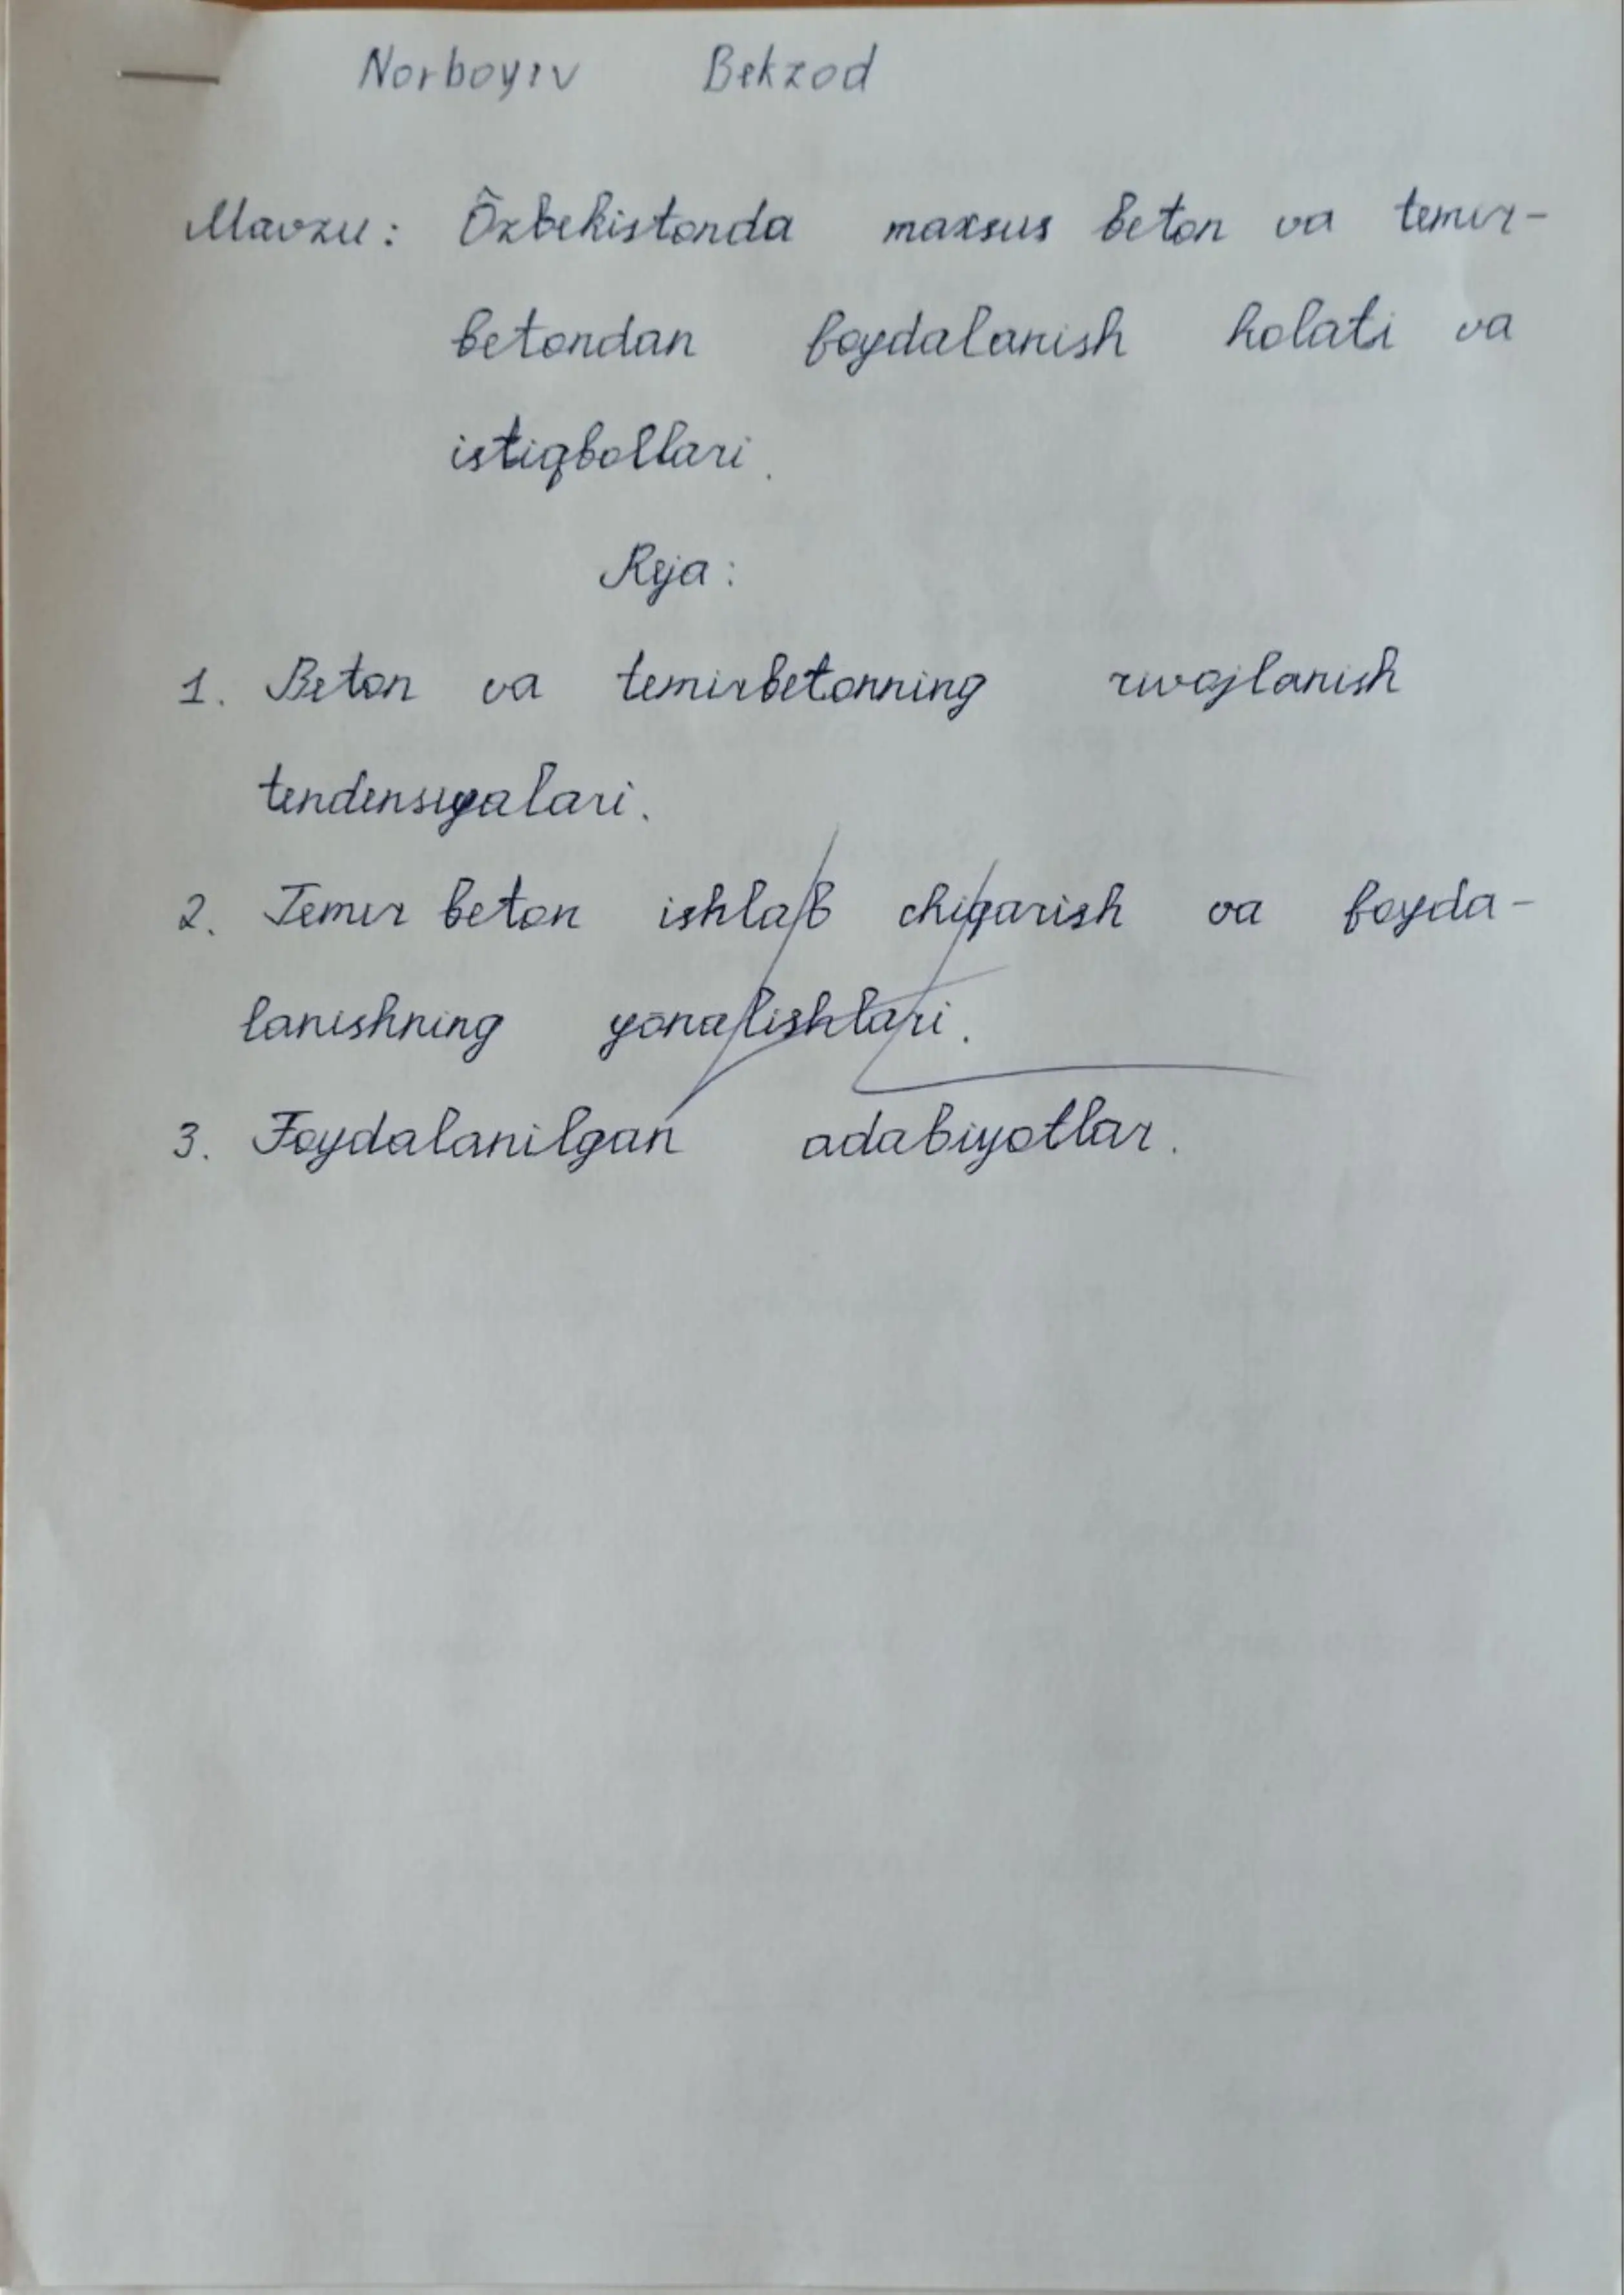 Norboyev Bekzod
Mavzu: Ôzbekistonda maxsus beton va temir-
betondan foydalanish holati va
istiqbollari.
Reja:
1. Beton va temirbetonning rivojlanish
tendensiyalari.
2. Temir beton ishlab chiqarish va foyda-
lanishning yōnalishlari.
3. Foydalanilgan adabiyotlar.